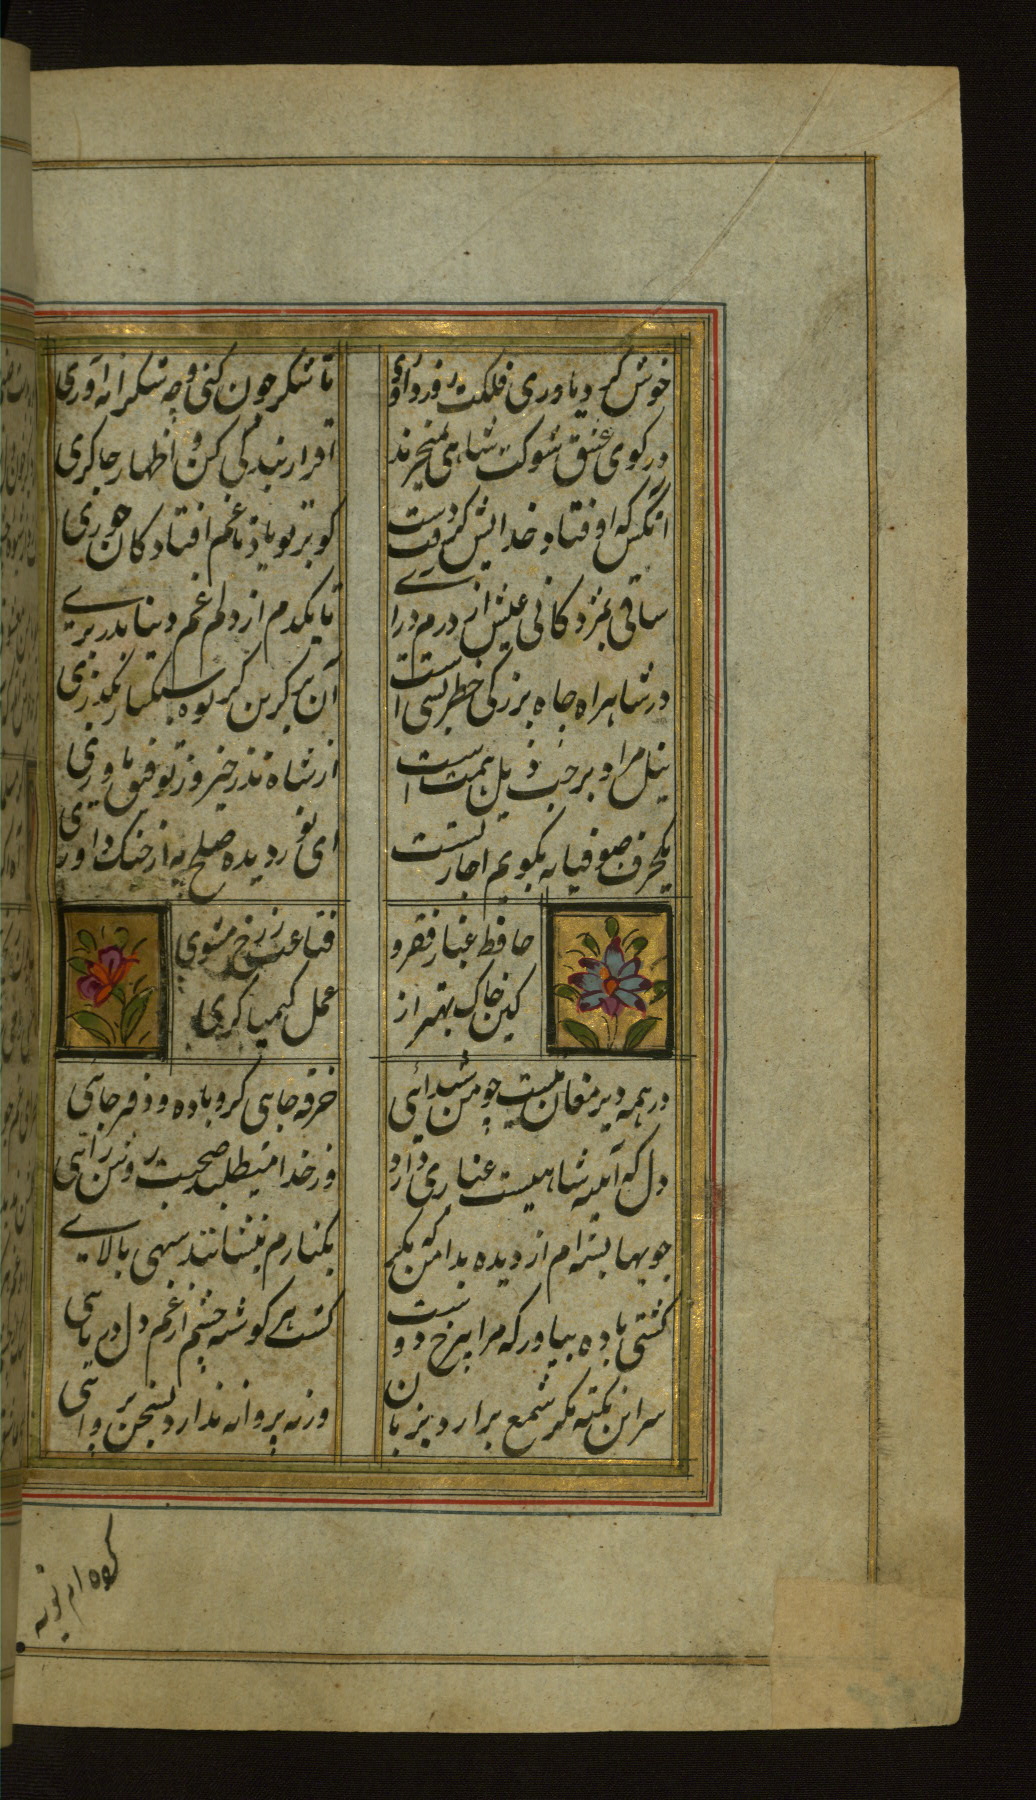 خوش کرد یاوری فلکت روز داوری تا شکر چون کنی و چه شکرانه آوری
در کوی عشق شوکت شاهی نمیخرند اقرار بندگی کن و اظهار چاکری
آنکس که اوفتاد خدایش گرفت دست کو بر تو باد تا غم افتادگان خوری
ساقی بمژدگانی عیش از درم درای تا یکدم از دلم غم دنیا بدر بری
در شاهراه جاه بزرگی خطر بسی است آن به کزین کریوه سبکبار بگذری
نیل مراد بر حسب همت است از شاه نذر خیر و ز توفیق یاوری
یکحرف صوفیانه بگویم اجازتست ای نور دیده صلح به از جنک و داوری
حافظ غبار فقر و قناعت ز رخ مشوی
کین خاک بهتر از عمل کیمیاگری
در همه دیر مغان نیست چو من شیدائی خرقه جائی گرو باده و دفتر جائی
دل که آینه شاهیست غباری دارد از خدا میطلبم صحبت روشن رائی
جویها بسته‌ام از دیده بدامن که مگر بکنارم بنشانند سهی بالایی
کشتی باده بیاور که مرا بی رخ دوست گشت هر گوشه چشم از غم دل دریائی
سر این نکته مگر شمع برآرد بزبان ورنه پروانه ندارد بسخن پروائی
کرده ام توبه